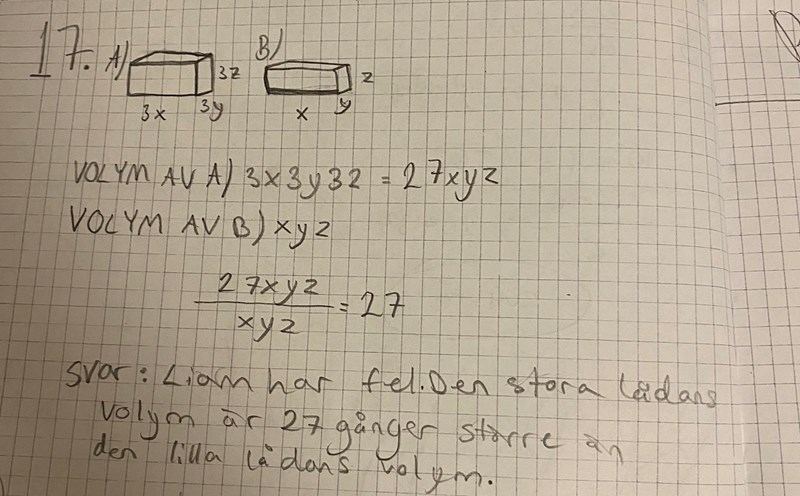 17. A) B)
3z z
3x 3y x y
VOLYM AV A) 3x3y3z = 27xyz
VOLYM AV B) xyz
27xyz
xyz
= 27
svar: Liam har fel. Den stora lådans
volym är 27 gånger större än
den lilla lådans volym.